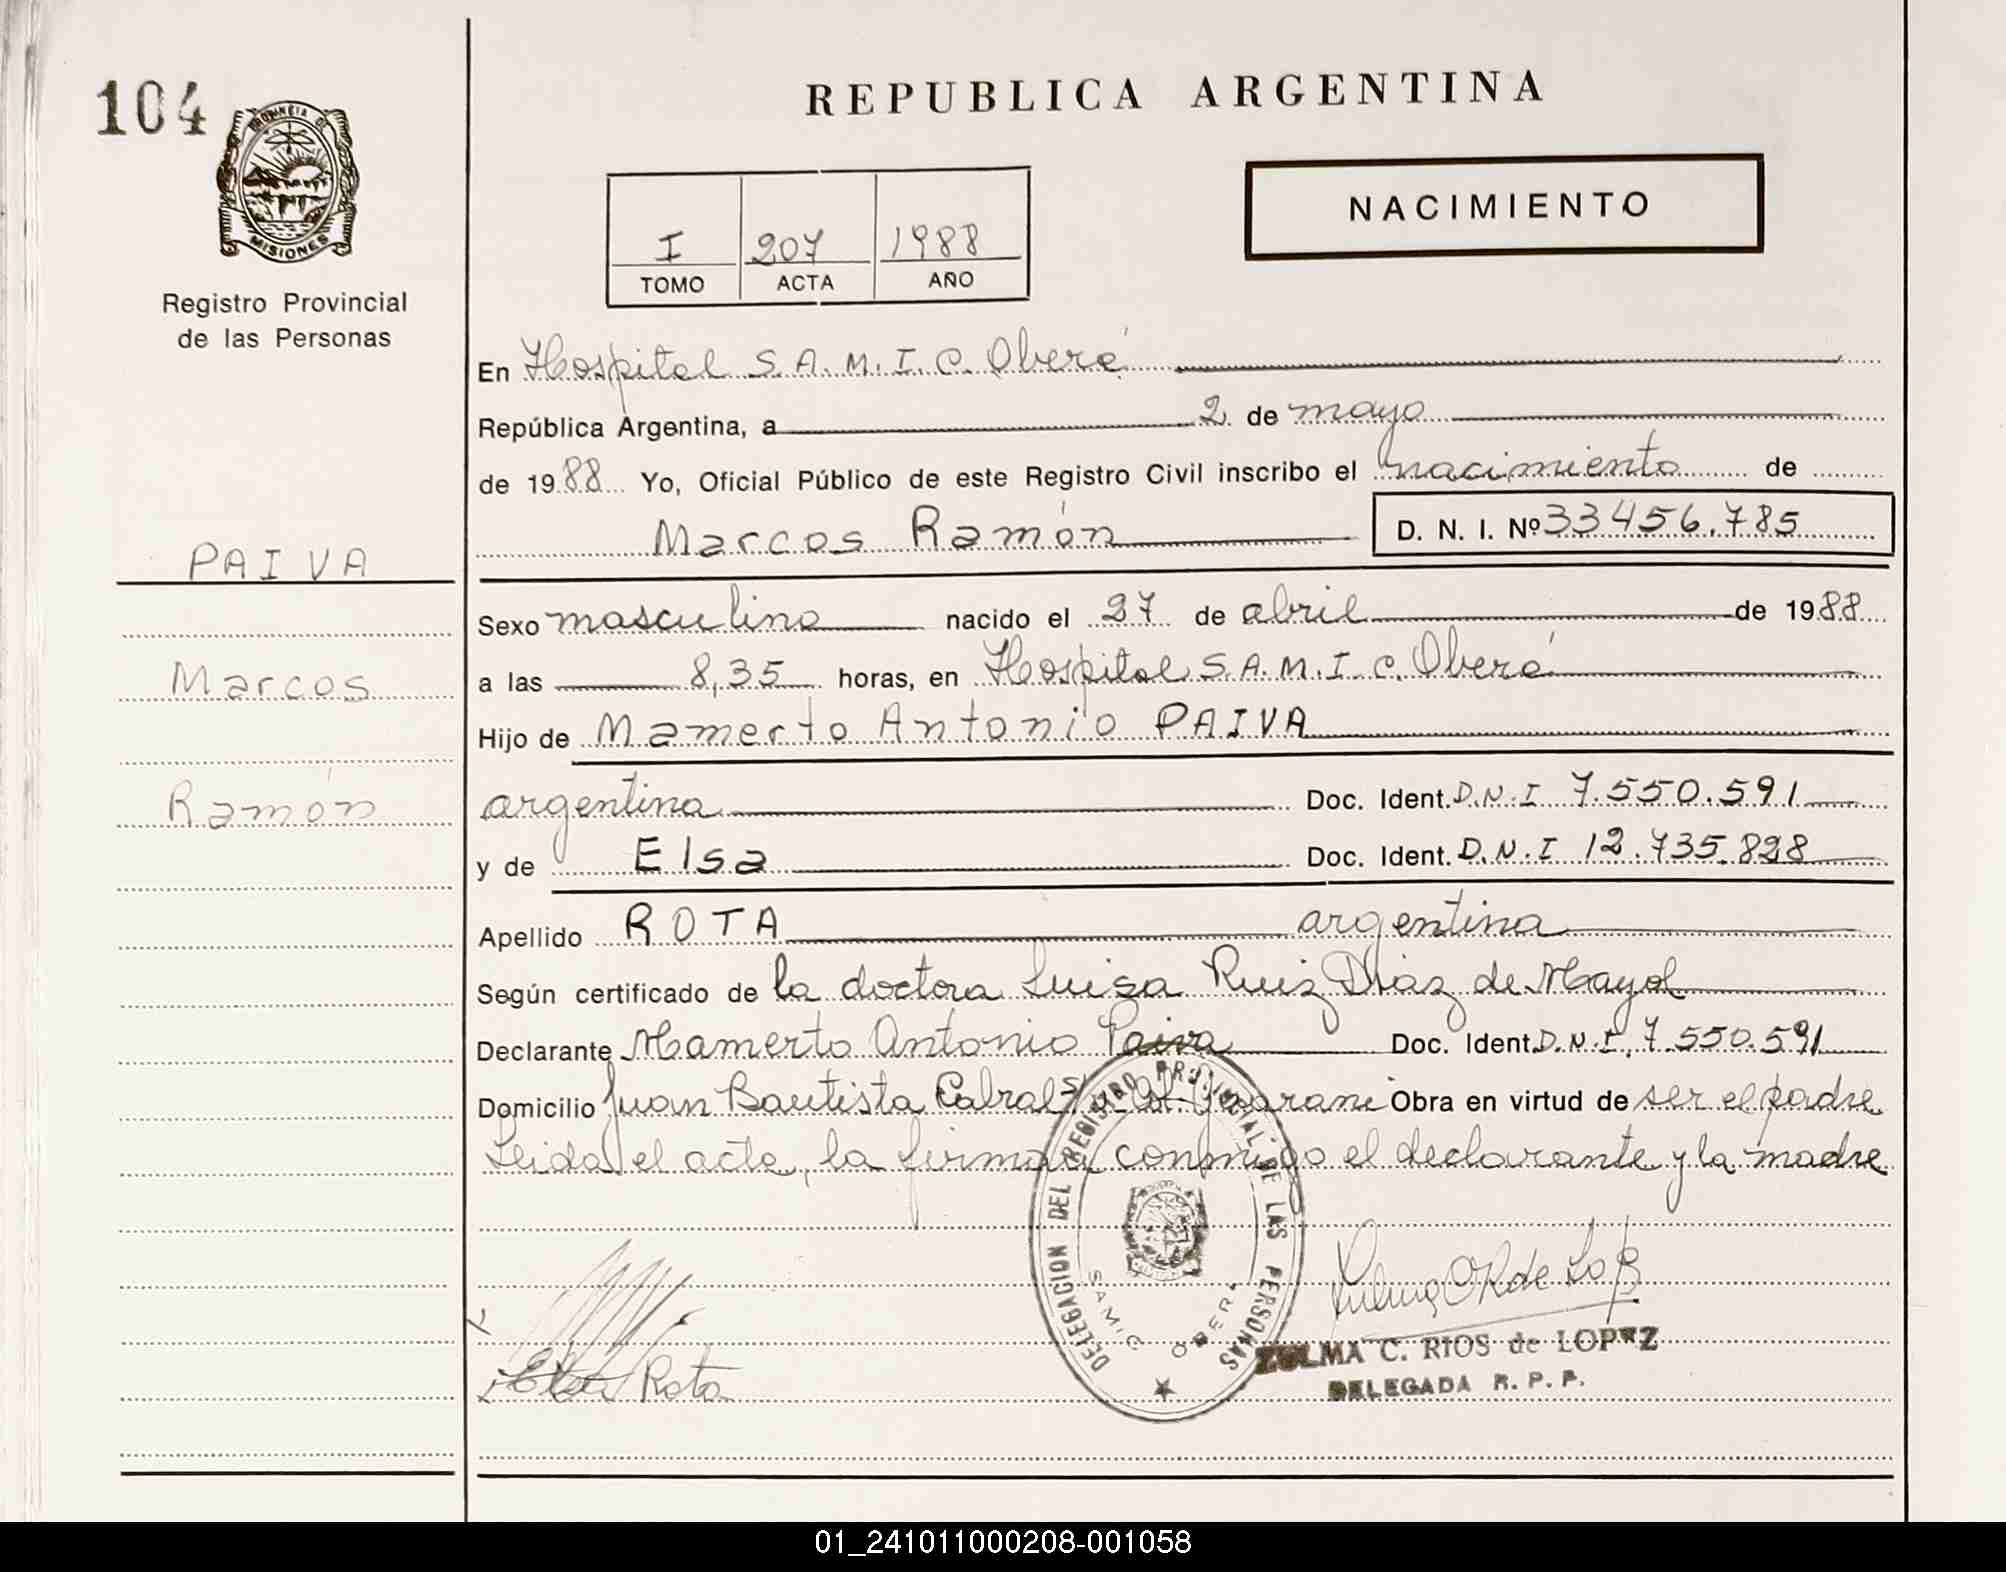 104
PROVINCIA DE
MISIONES
Registro Provincial
de las Personas
PAIVA
Marcos
Ramón
REPUBLICA ARGENTINA
NACIMIENTO
I 207 1988
TOMO ACTA AÑO
En Hospital S.A.M.I.C. Oberá
República Argentina, a 2 de mayo
de 1988 Yo, Oficial Público de este Registro Civil inscribo el nacimiento de
Marcos Ramón D. N. I. Nº 33456.785
Sexo masculino nacido el 27 de abril de 1988
a las 8,35 horas, en Hospital S.A.M.I.C. Oberá
Hijo de Mamerto Antonio PAIVA
argentina Doc. Ident. D.N.I 7.550.591
y de Elsa Doc. Ident. D.N.I 12.735.828
Apellido ROTA argentina
Según certificado de la doctora Luisa Ruiz Diaz de Mayol
Declarante Mamerto Antonio Paiva Doc. Ident. D.N.I. 7.550.591
Domicilio Juan Bautista Cabral Guarani Obra en virtud de ser el padre
Leida el acta, la firman conmigo el declarante y la madre
DELEGACION DEL REGISTRO PROVINCIAL DE LAS PERSONAS
SAMIC OBERA
Rota
ZULMA C. RIOS de LOPEZ
DELEGADA R. P. P.
01_241011000208-001058